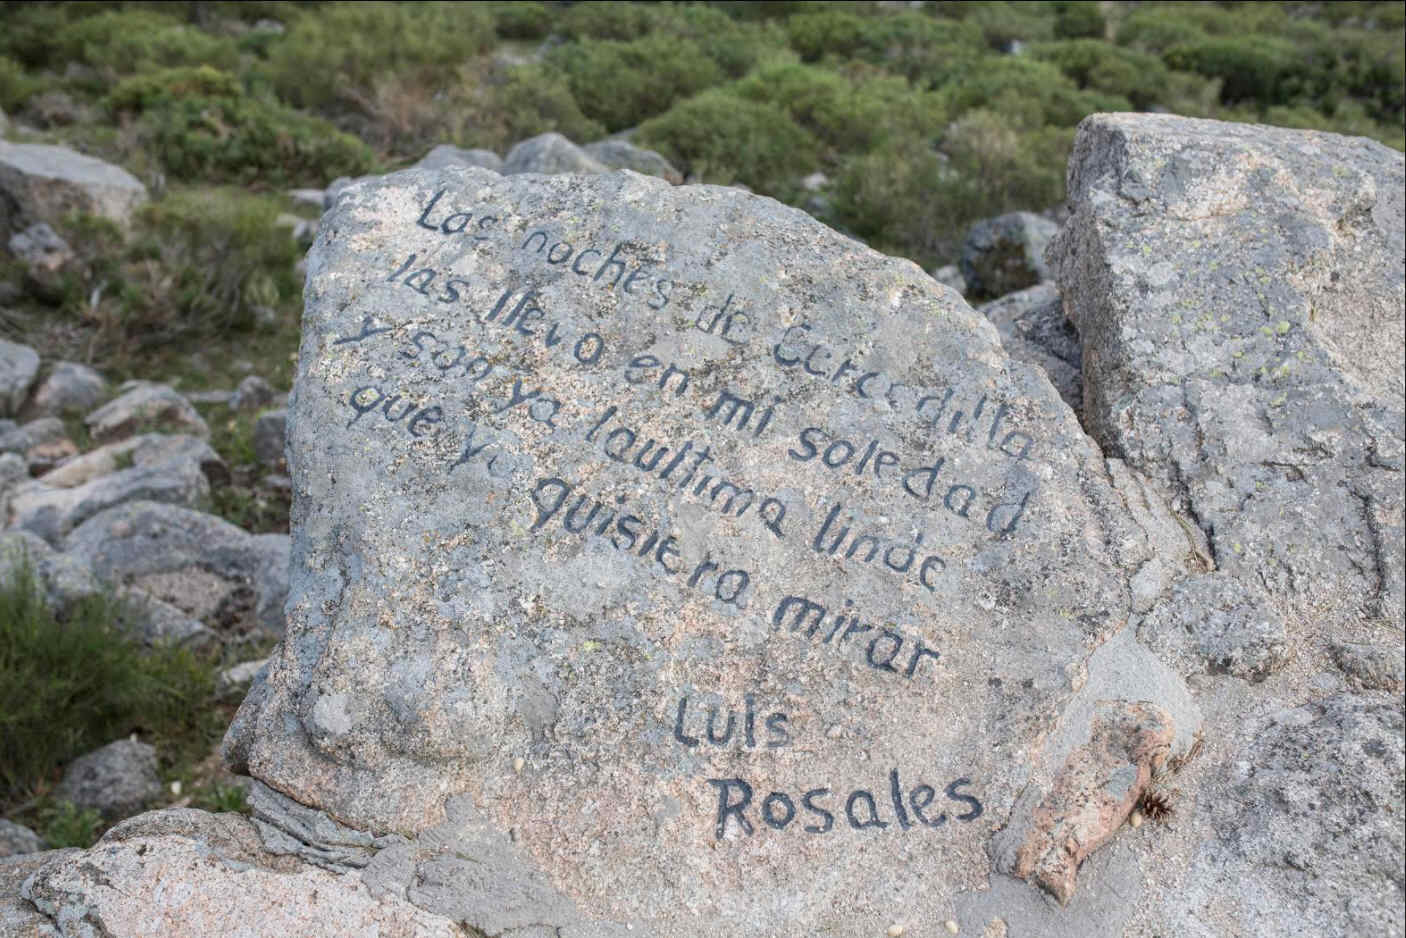 Las noches de Cercedilla
las llevo en mi soledad
y son ya la ultima linde
que yo quisiera mirar
Luis
Rosales